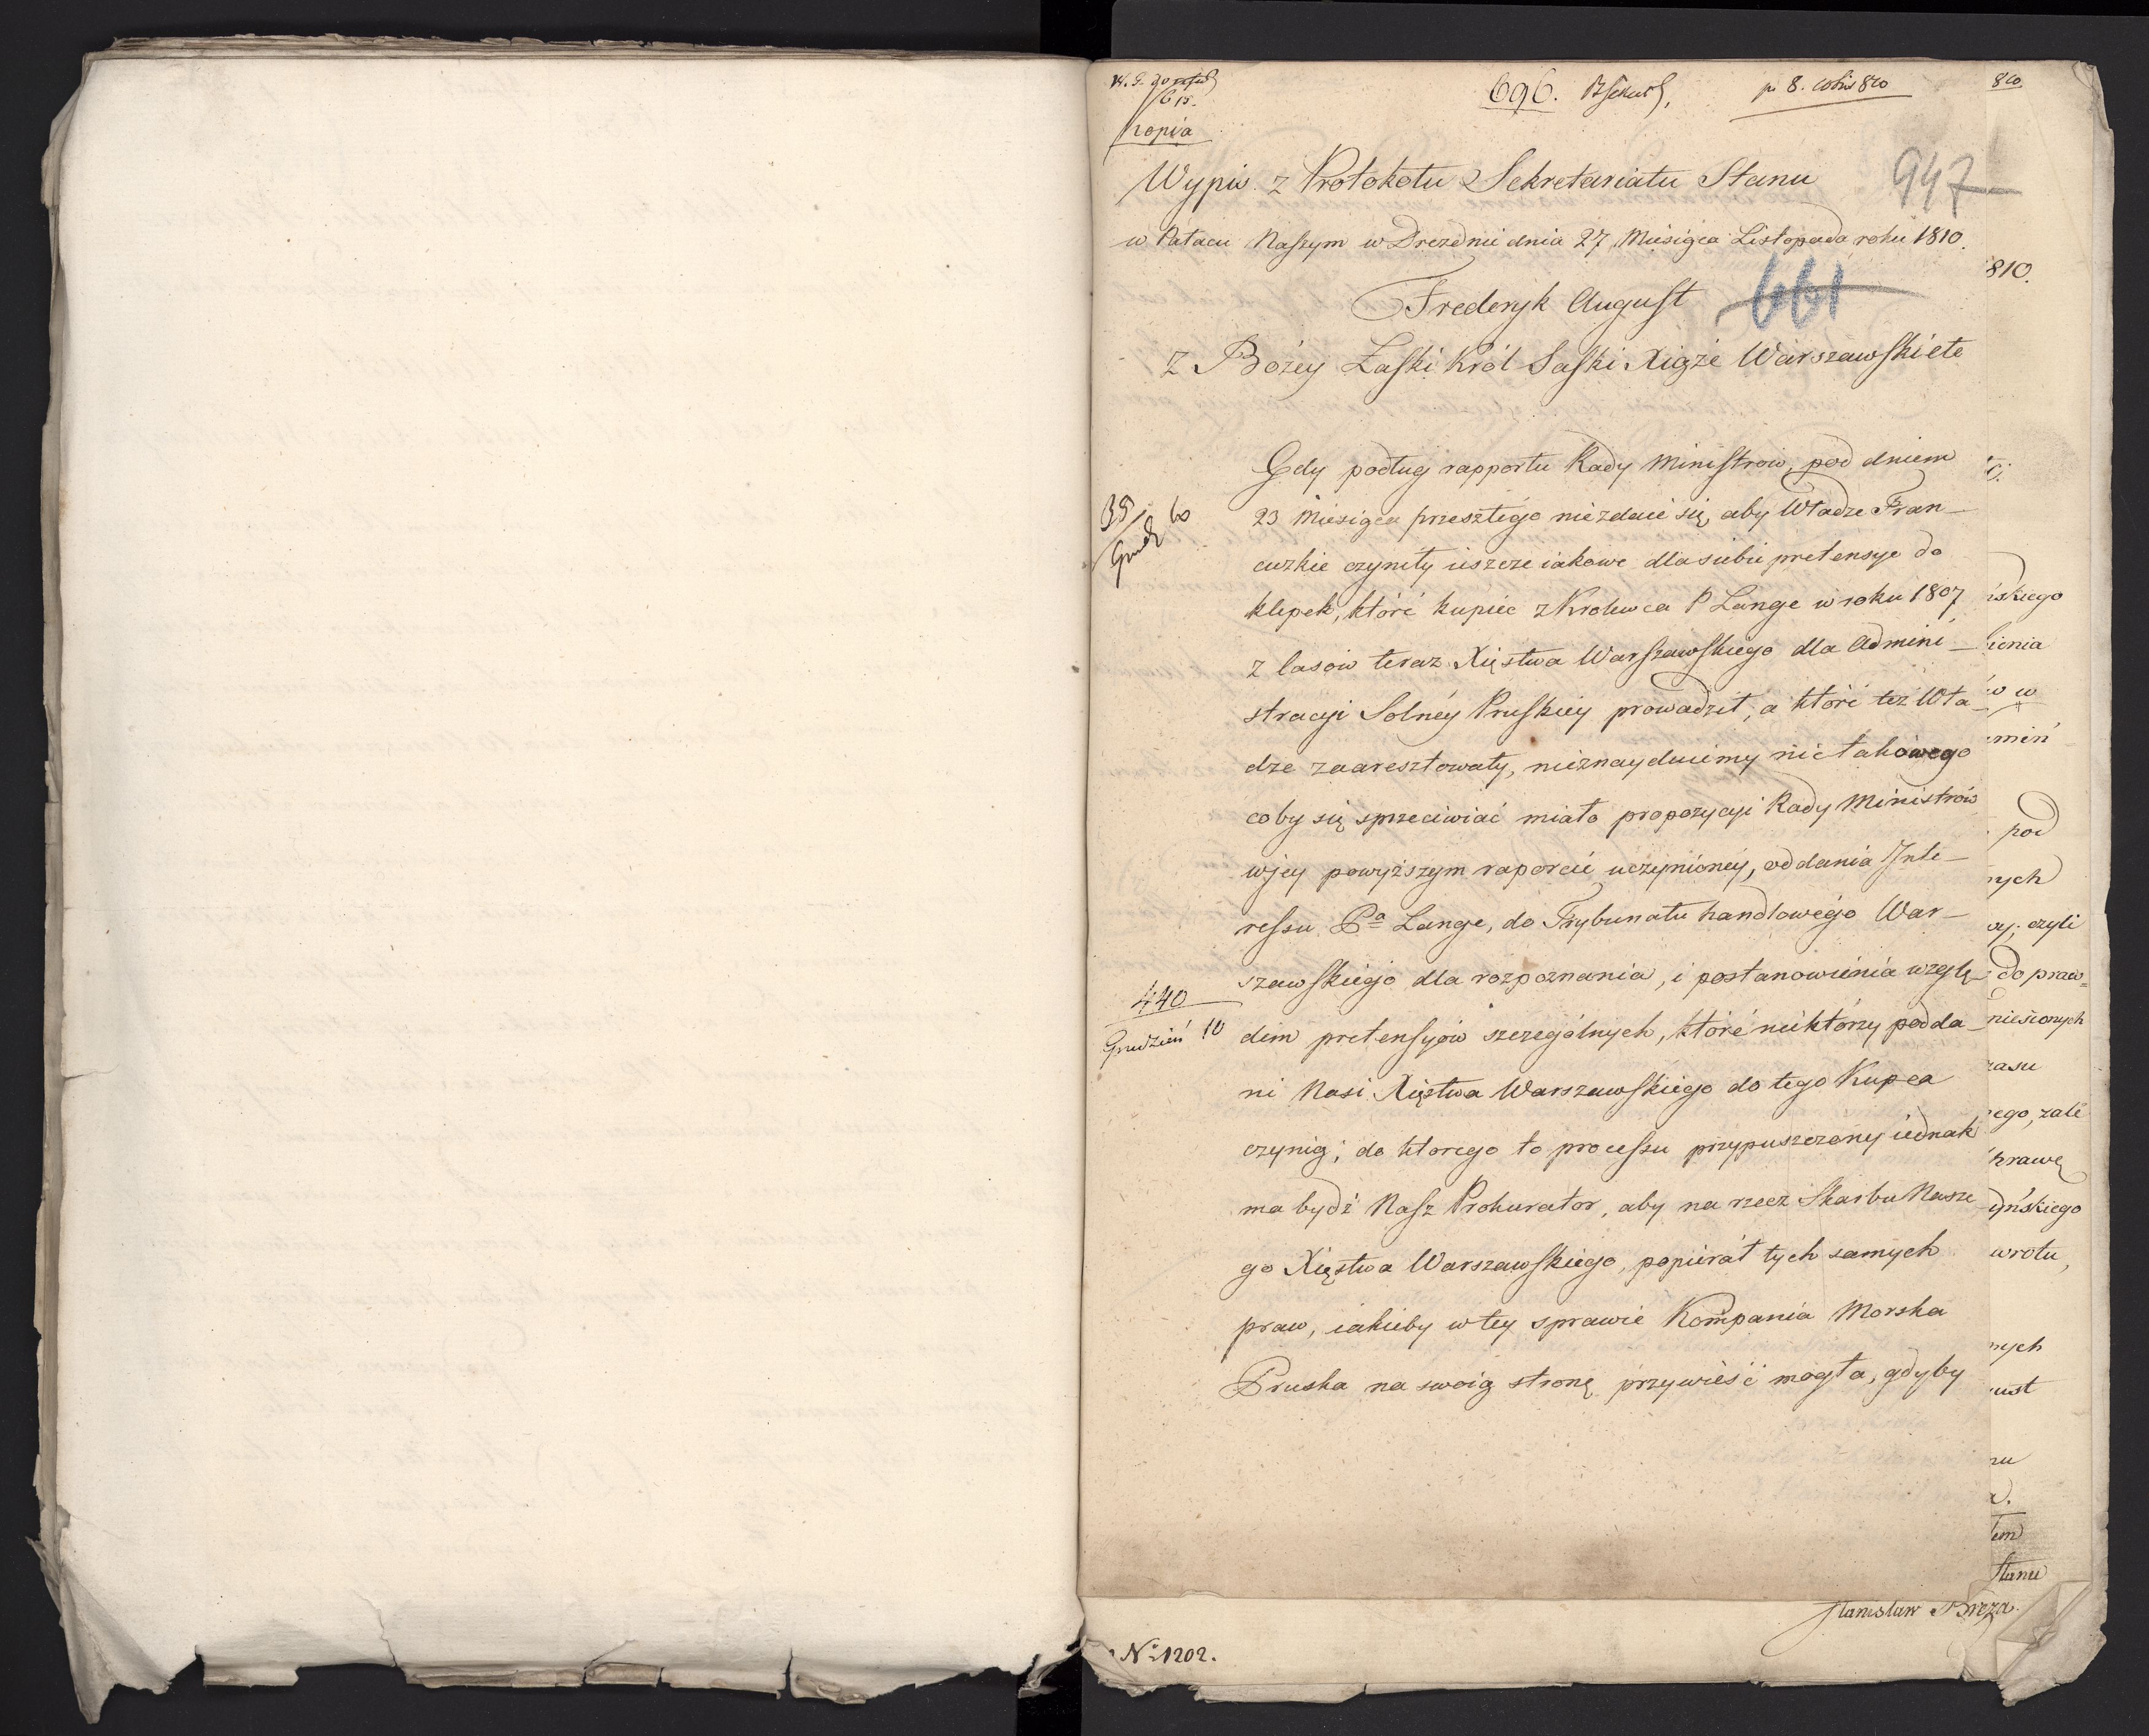 696. p 8. 810
810
Kopia
Wypis z Protokołu Sekretariatu Stanu
947
w Pałacu Naszym w Dreźdnie dnia 27 Miesiąca Listopada roku 1810.
810.
Fryderyk August
661
z Bożey Łaski Król Saski Xiąże Warszawski etc
Gdy podług rapportu Rady Ministrow, pod dniem
23 Miesiąca przeszłego niezdaie się, aby Władze Fran-
cuzkie czyniły ieszcze iakowe dla siebie pretensye do
klepek, które kupiec z Krolewca P Lange w roku 1807
z lasów teraz Xięstwa Warszawskiego dla Admini-
stracyi Solnéy Pruskiey prowadził, a które też Wła-
dze zaaresztowały, nieznayduiemy nic takowego
coby się sprzeciwiać miało propozycyi Rady Ministrów
wjey powyższym raporcie uczynioney, oddania Inte-
ressu Pa Lange, do Trybunału handlowego War-
szawskiego dla rozpoznania, i postanowienia wzglę-
dem pretensyów szczególnych, które niektórzy podda-
ni Nasi Xięstwa Warszawskiego do tego Kupca
czynią; do ktorego to processu przypuszczony iednak
ma bydź Nasz Prokurator, aby na rzecz Skarbu Nasze
go Xięstwa Warszawskiego, popierał tych samych
praw, iakieby w tey sprawie Kompania Morska
Pruska na swoią stronę przywieść mogła, gdyby
39
Grud 60
440
Grudzień 10
ińskiego
ienia
ów w
mień
pod
nych
czyli
do praw=
niesionych
zasu
ego, zale
prawę
yńskiego
wrotu,
nych
ust
nu
tem
Stanu
Stanisław Breza.
No 1202.